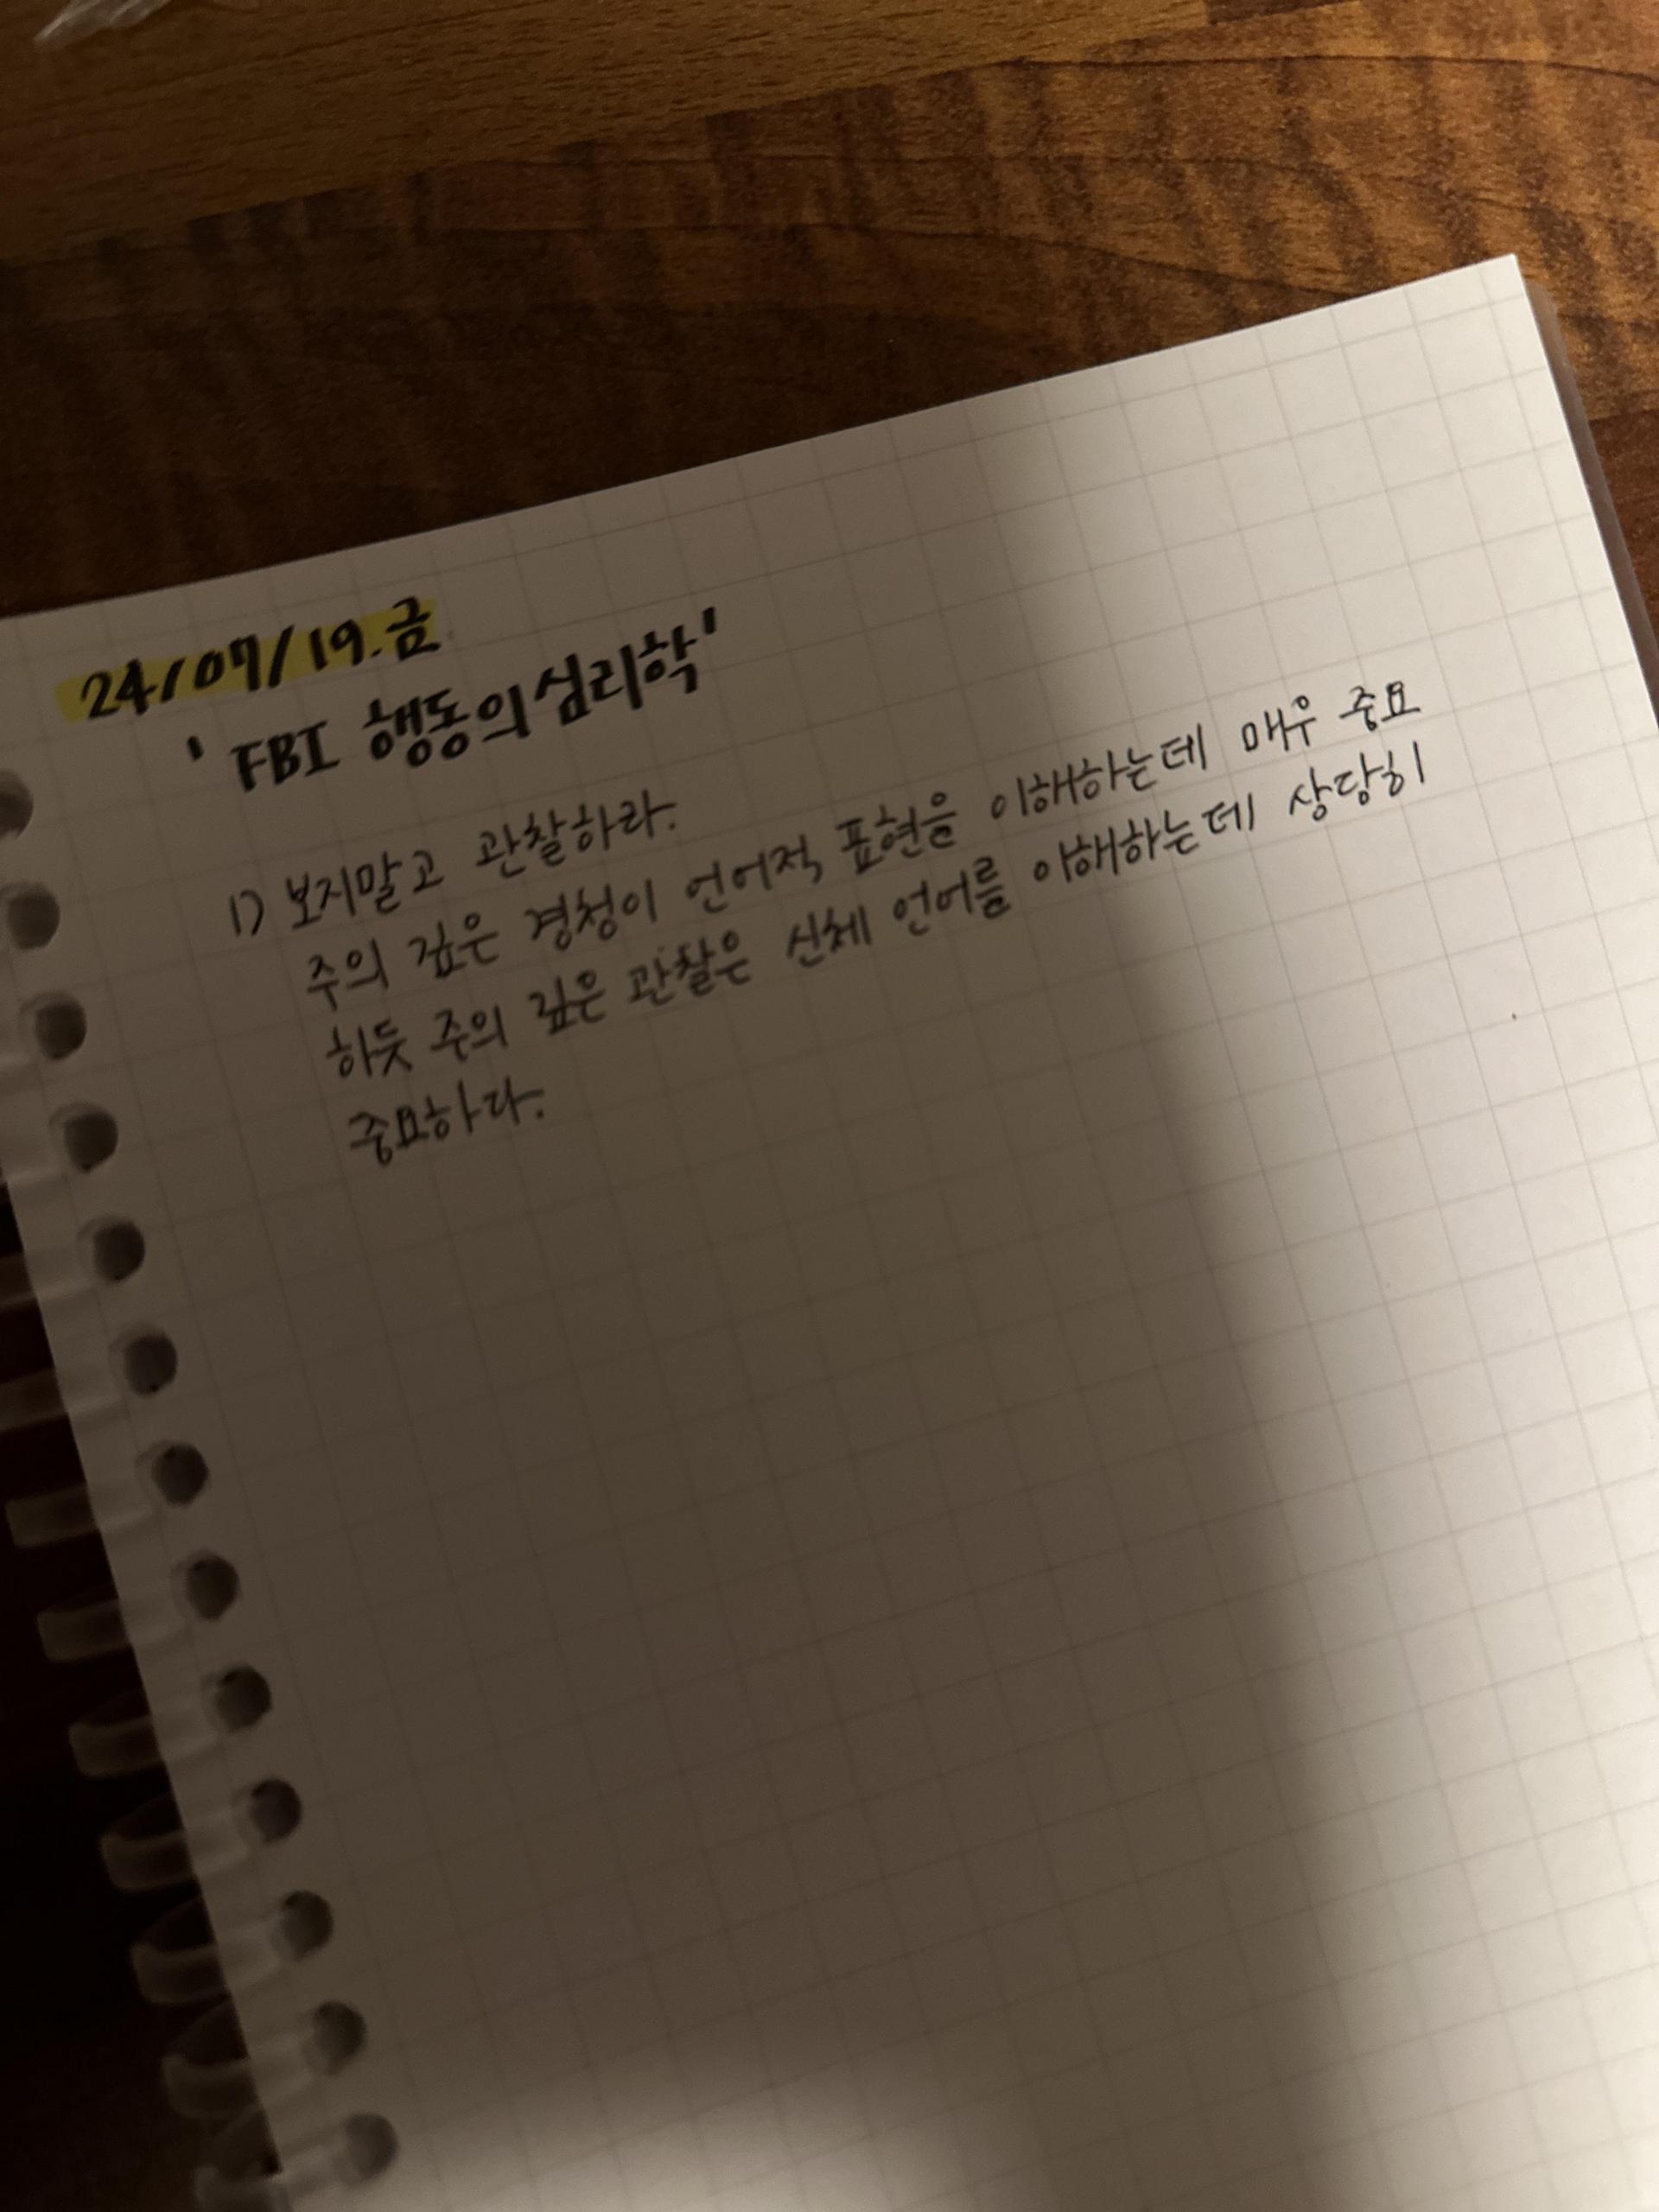 24/07/19.금
' FBI 행동의 심리학'
1) 보지말고 관찰하라.
주의 깊은 경청이 언어적 표현을 이해하는데 매우 중요
하듯 주의 깊은 관찰은 신체 언어를 이해하는데 상당히
중요하다.